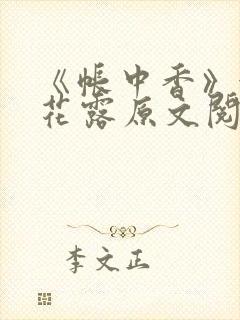 《帐中香》
花露原文阅
李文正